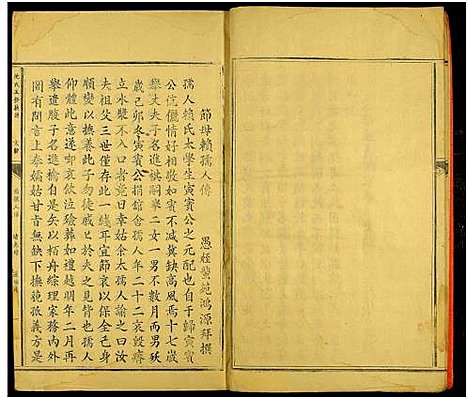 節母賴孺人傳
愚姪蘭苑鴻源拜撰
孺人賴氏太學生寅賓公之元配也于歸寅賓
公伉儷情好相敬如賓不減冀缺高風焉十七歲
舉丈夫子名進祺嗣舉二女一男不數月而男殀
歲己卯冬寅賓公捐館舍孺人年二十二哀毀瘠
立水漿不入口者兇日幸姑余太孺人諭之曰汝
夫祖父三世僅存此一綫耳宜節哀以保全己身
順變以撫養此子勿徒戚于於夫之見背也孺人
仰體此意遂啣哀飲泣殮葬如禮越明年二月再
舉遺腹子名進榆自是矢以柏舟綜理家務內外
罔有閒言上奉孀姑甘旨無缺下撫藐孤義方是